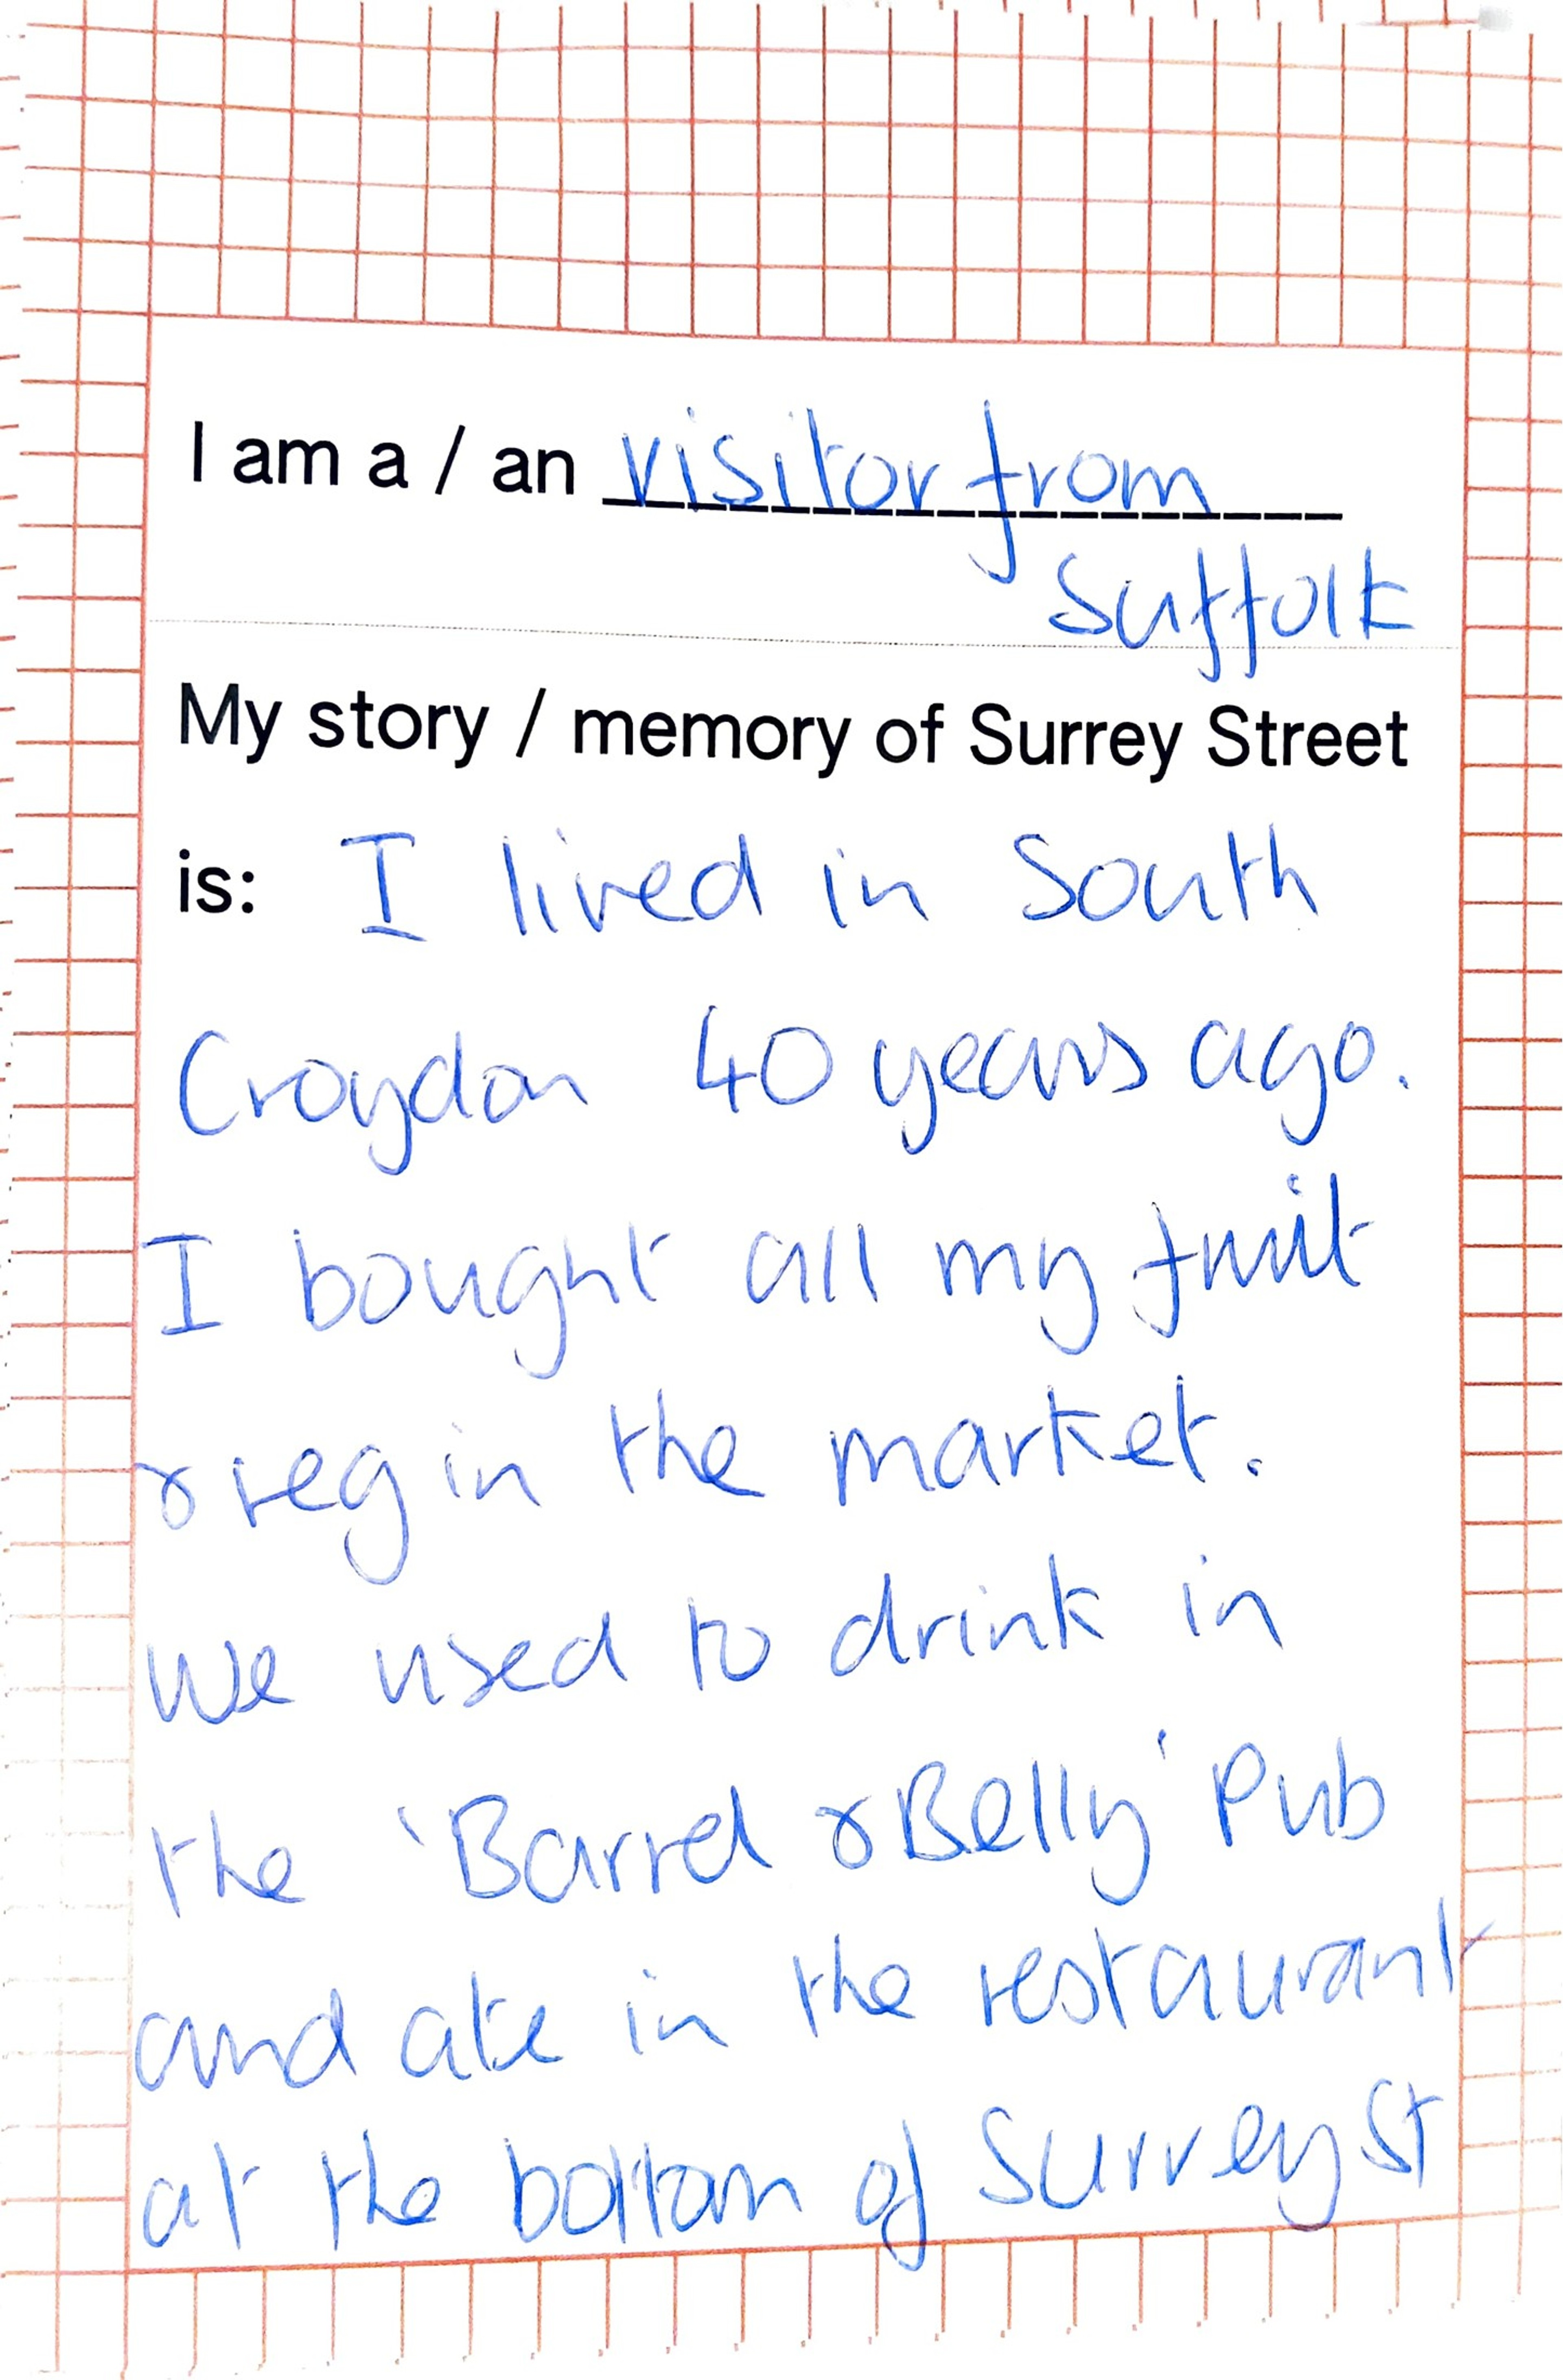 I am a / an visitor from
Suffolk
My story / memory of Surrey Street
is: I lived in South
Croydon 40 years ago.
I bought all my fruit
& veg in the market.
We used to drink in
the 'Barrel & Belly' Pub
and ate in the restaurant
at the bottom of Surrey St